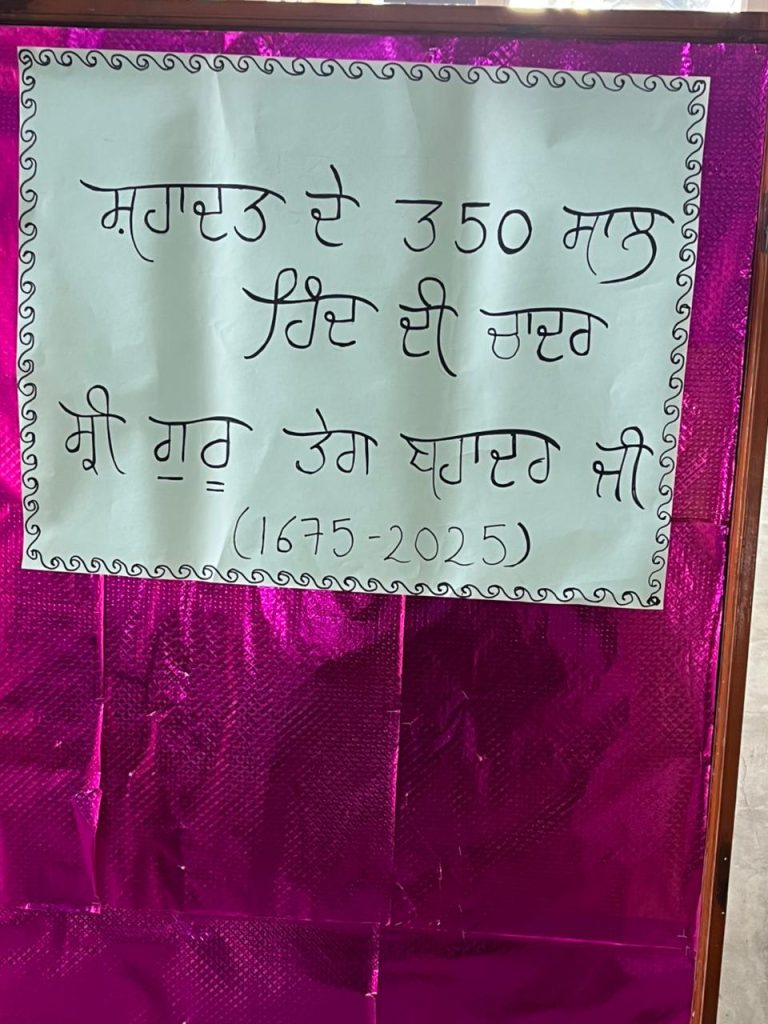 ਸ਼ਹਾਦਤ ਦੇ 350 ਸਾਲ
ਹਿੰਦ ਦੀ ਚਾਦਰ
ਸ੍ਰੀ ਗੁਰੂ ਤੇਗ ਬਹਾਦਰ ਜੀ
(1675-2025)